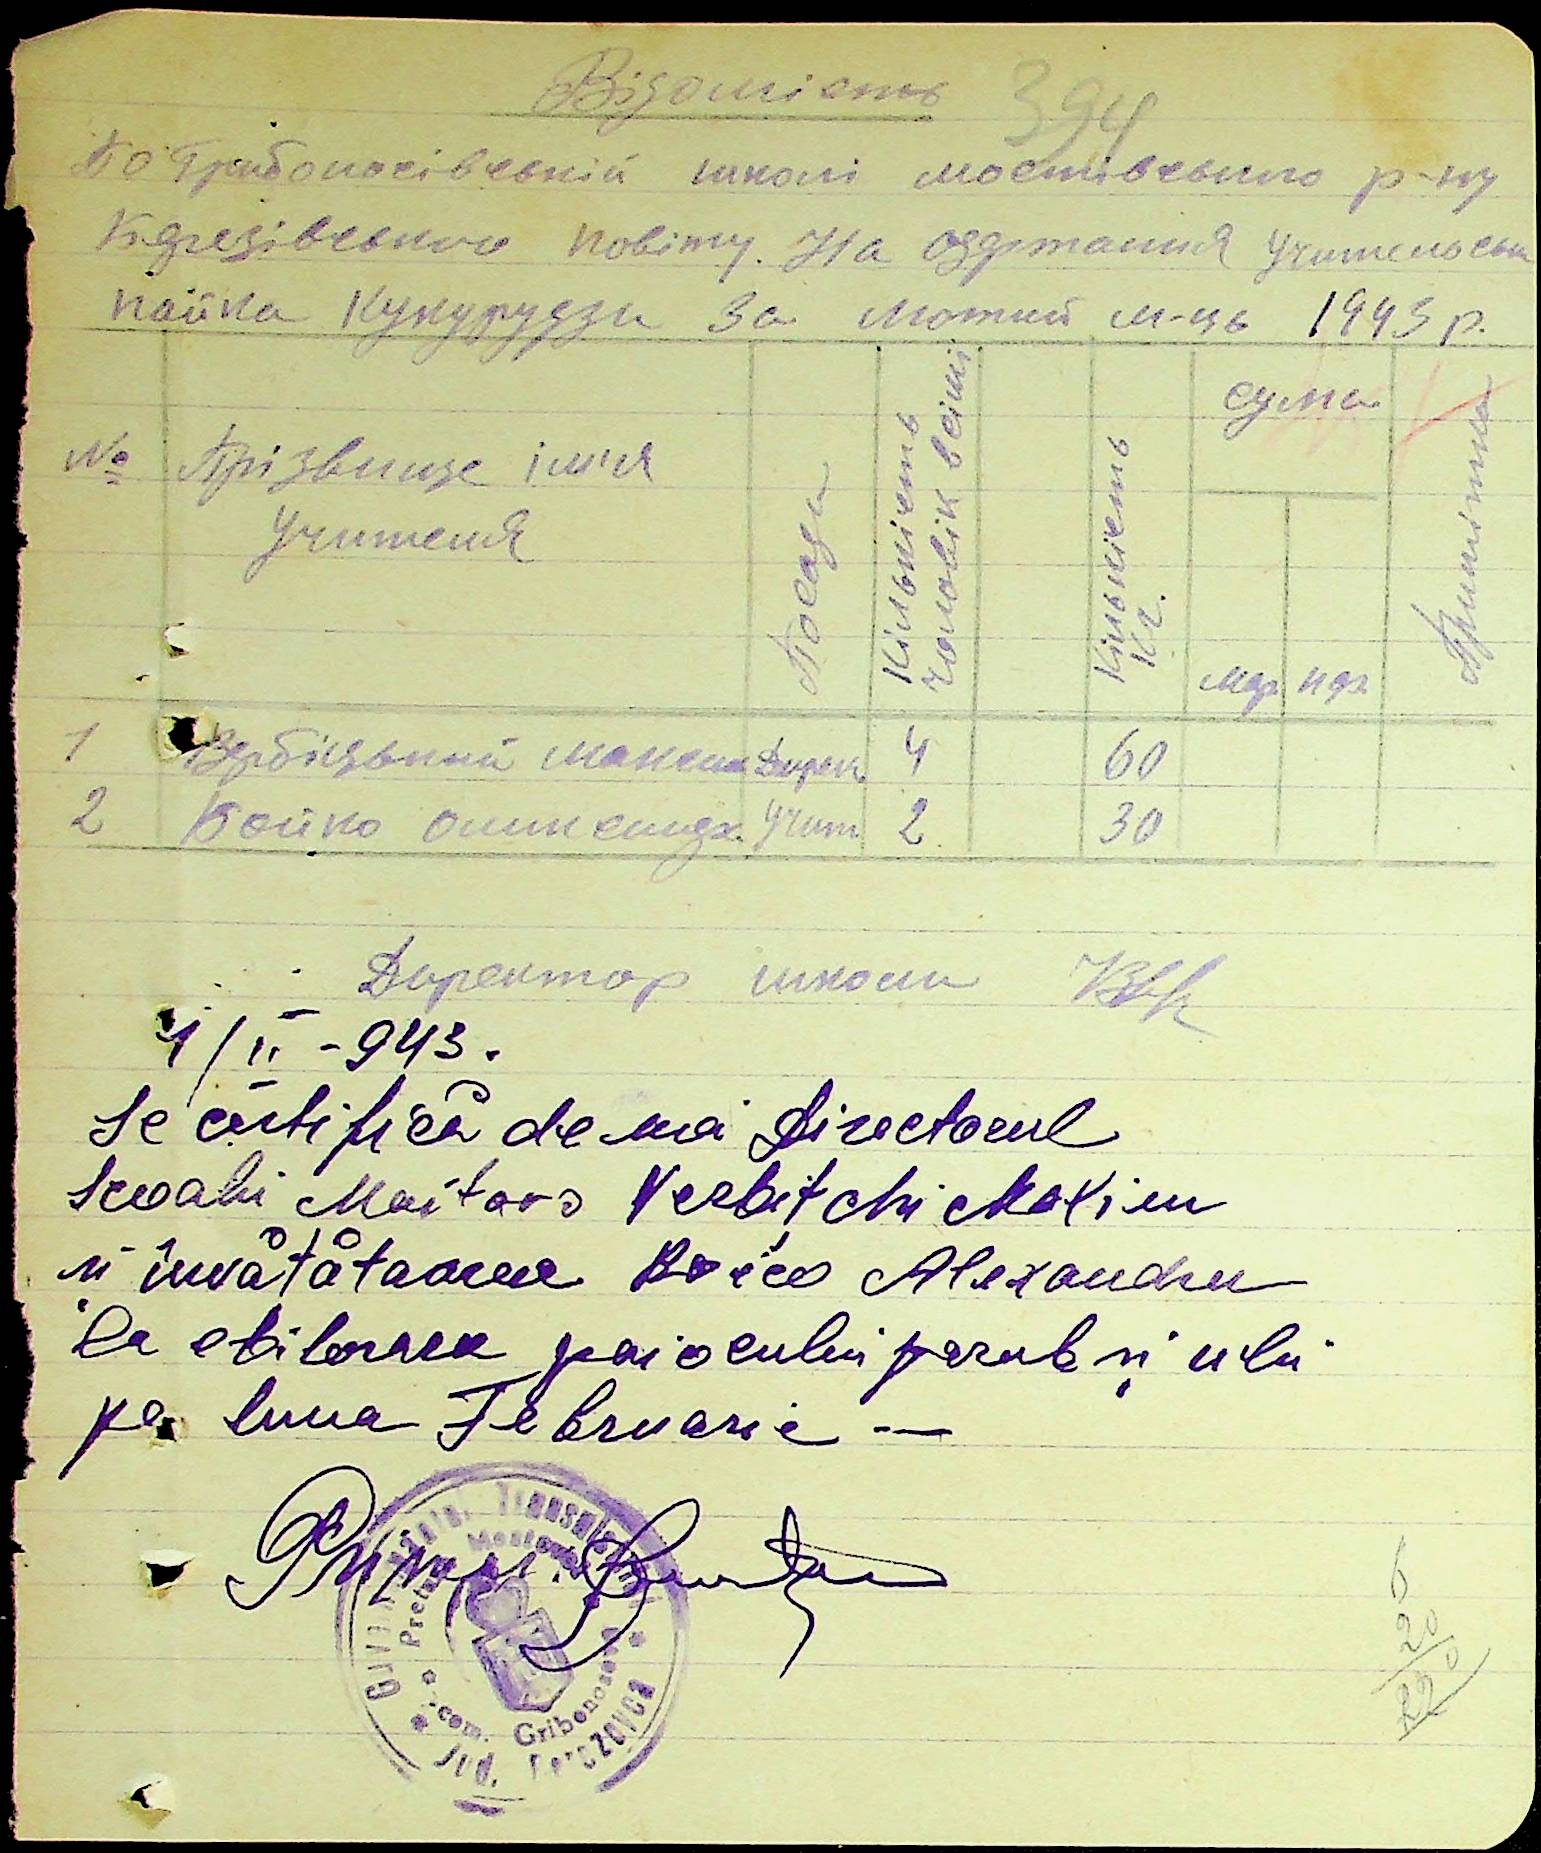 Відомість 394
По Грибоносівській школі мостівського р-ну
Березівського повіту. На одержання учительськ
пайка кукурудзи за лютий м-ць 1943 р.
№ Прізвище ім'я учителя Посади Кількість чоловік в сімі Кількість кг. сума Примітка
мар пфг
1 Вербіцький Максим Дирек. 4 60
2 Бойко Олександ. учит. 2 30
Директор школи
1/II-943.
Se certifică de mai Directorul
Scoalii Verbitchi Maxim
și învătătoarea Boico Alexandru
la paiocului
pe luna Februarie —
Primar
Guvernământ. Transnistriei
Pretura Mostovoi
com. Gribonosova
Jud. Berezovca
6
20
220